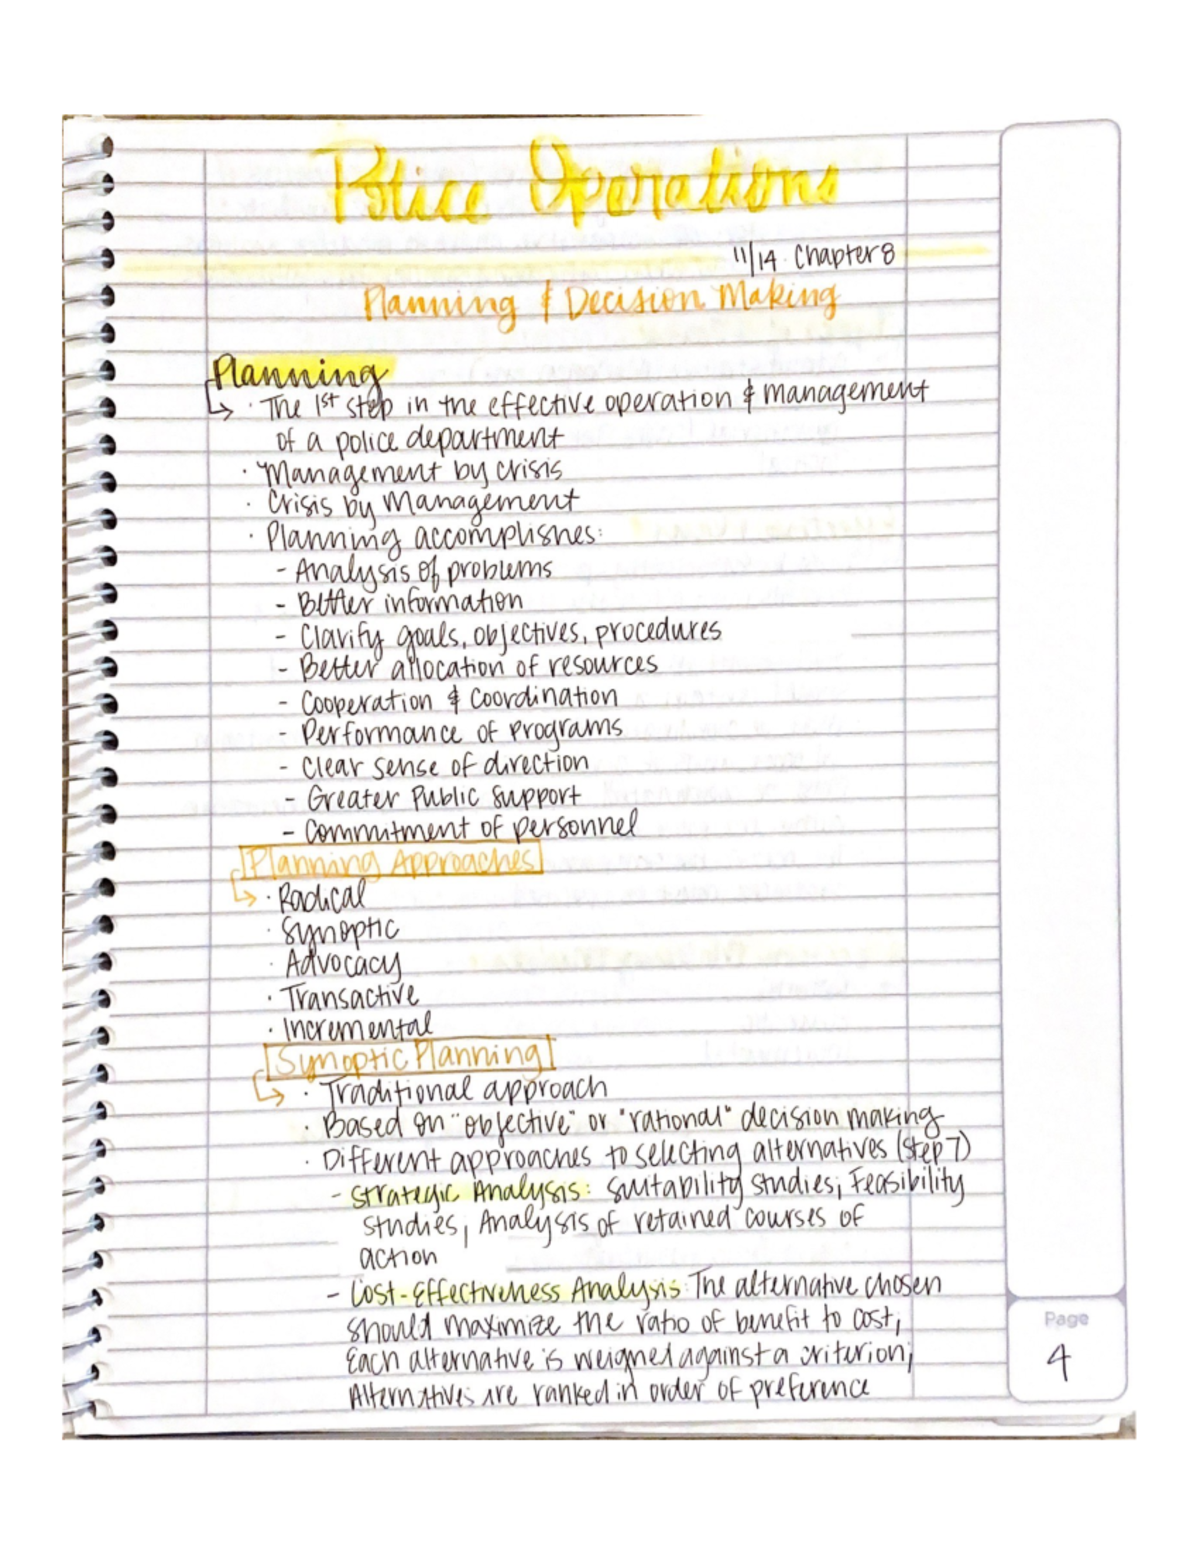 Police Operations
11/14 Chapter 8
Planning & Decision Making
Planning
· The 1st step in the effective operation & management
of a police department
· Management by crisis
· Crisis by Management
· Planning accomplishes:
- Analysis of problems
- Better information
- Clarify goals, objectives, procedures
- Better allocation of resources
- Cooperation & Coordination
- Performance of programs
- Clear sense of direction
- Greater Public Support
- Commitment of personnel
Planning Approaches
· Radical
· Synoptic
· Advocacy
· Transactive
· Incremental
Synoptic Planning
· Traditional approach
· Based on "objective" or "rational" decision making
· Different approaches to selecting alternatives (step 7)
- Strategic Analysis: Suitability studies; Feasibility
studies, Analysis of retained courses of
action
- Cost-Effectiveness Analysis: The alternative chosen
should maximize the ratio of benefit to cost;
Each alternative is weighed against a criterion;
Alternatives are ranked in order of preference
Page
4